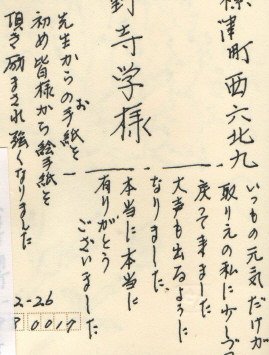 津町西六北九
寺学様
いつもの元気だけが
取りえの私に少しづつ
戻って来ました
大声も出るように
なりました
本当に本当に
有りがとう
ございました
先生からのお手紙を
初め皆様から絵手紙を
頂き励まされ強くなりました
2-26
0017